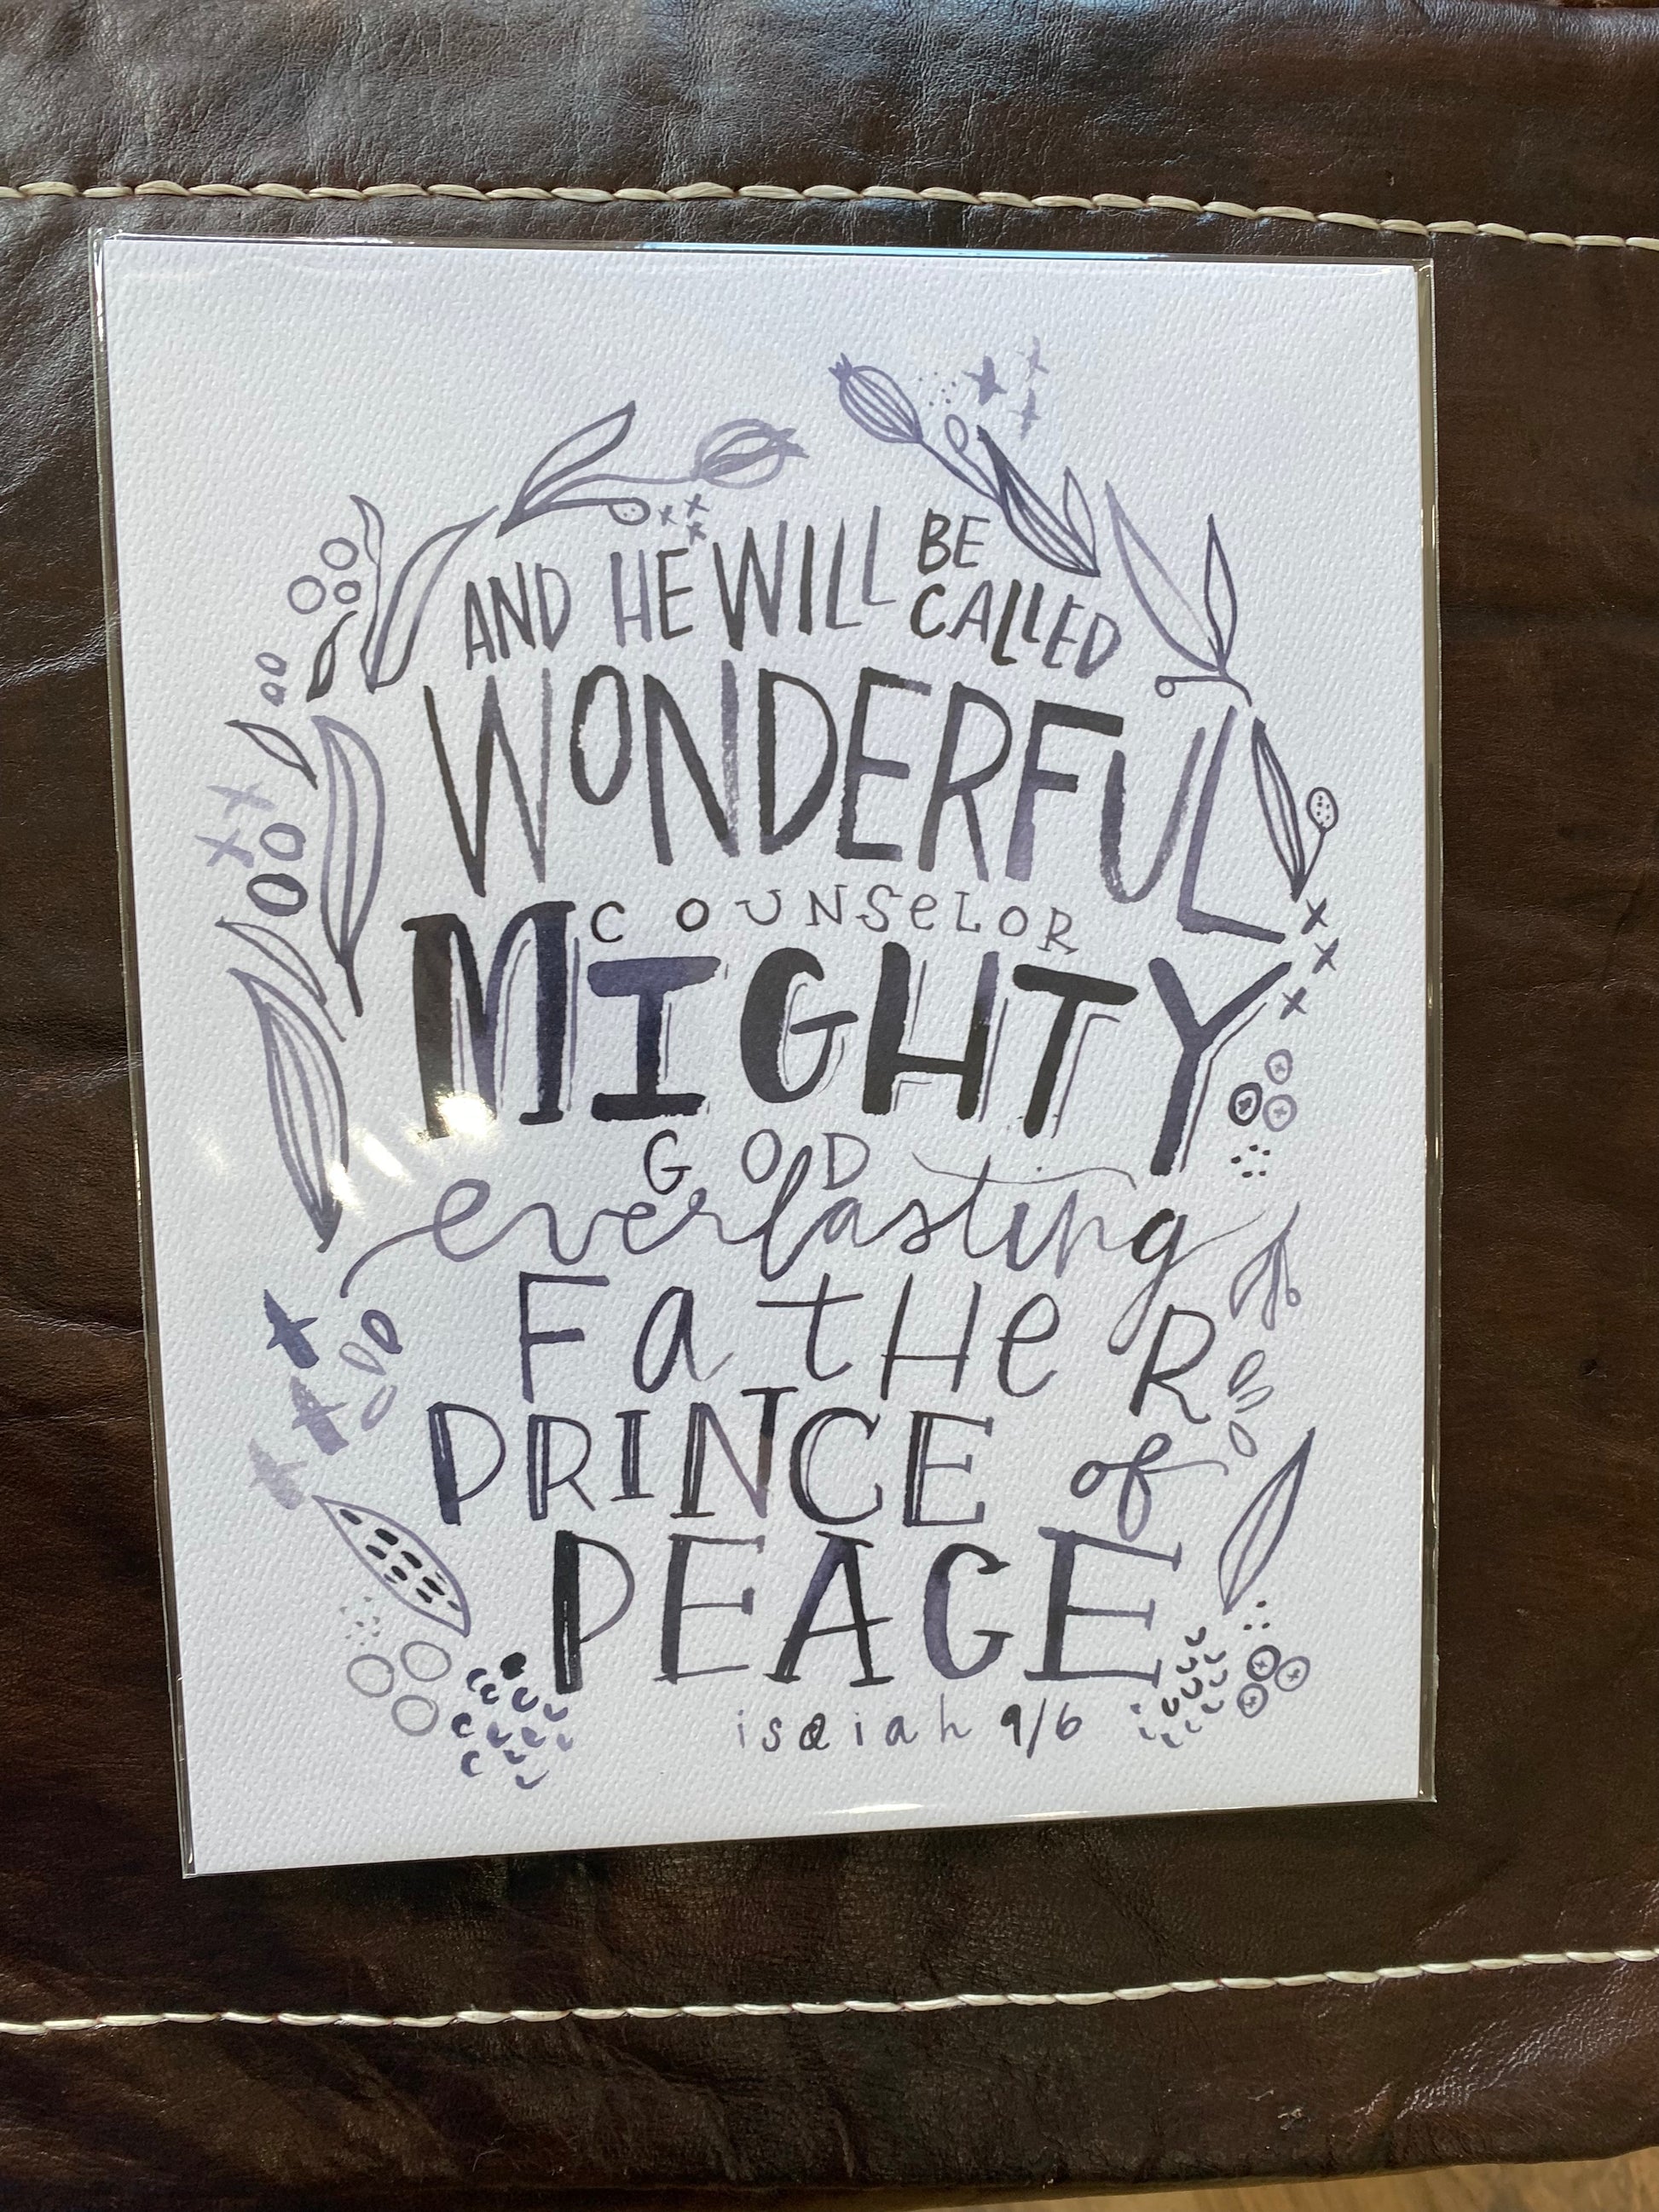 AND HE WILL BE
CALLED
WONDERFUL
COUNSeLOR
MIGHTY
GOD
everlasting
FatHeR
PRINCE of
PEACE
isaiah 9/6